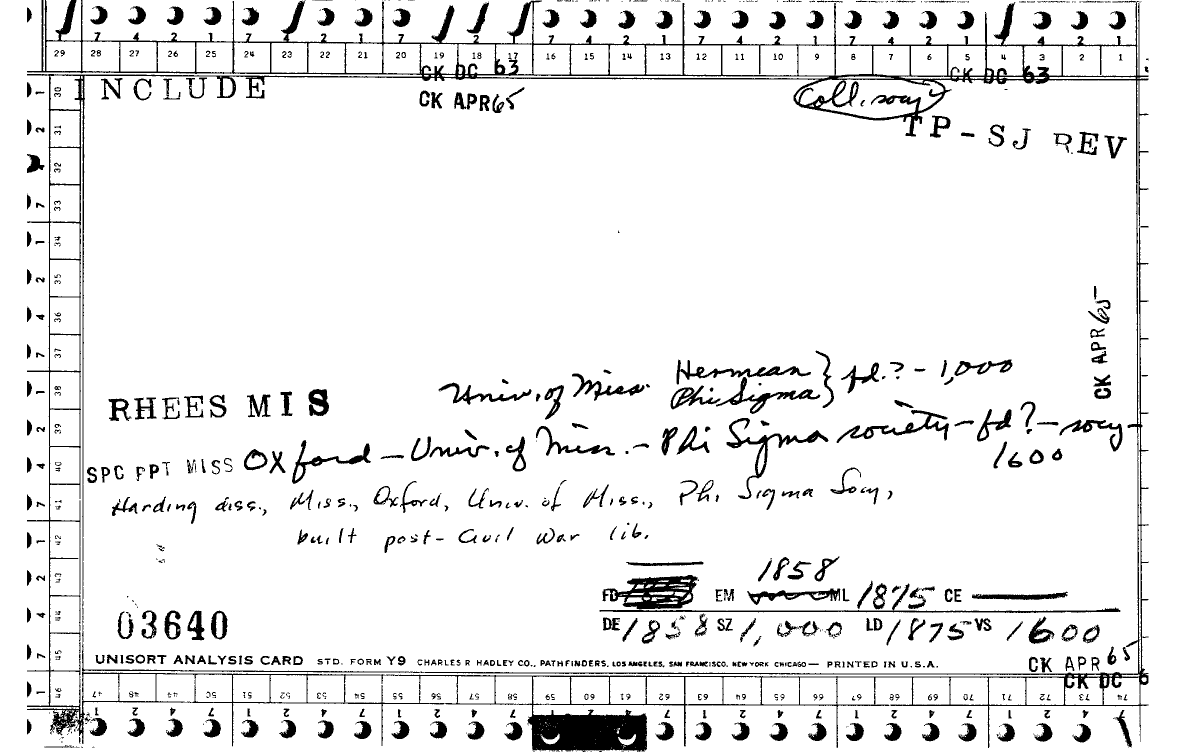 1 7 4 2 1 7 4 2 1 7 4 2 1 7 4 2 1 7 4 2 1 7 4 2 1 7 4 2 1
29 28 27 26 25 24 23 22 21 20 19 18 17 16 15 14 13 12 11 10 9 8 7 6 5 4 3 2 1
CK DC 63 CK DC 63
INCLUDE CK APR 65 Coll. socy
TP-SJ REV
30 31 32 33 34 35 36 37 38 39 40 41 42 43 44 45 46
CK APR 65
Univ. of Miss Hermean } fd.? - 1,000
Phi Sigma }
RHEES MIS
SPC PPT MISS Oxford - Univ. of Miss. - Phi Sigma society - fd? - socy - 1600
Harding diss., Miss., Oxford, Univ. of Miss., Phi Sigma Socy,
built post-Civil War lib.
1858
FD EM ML 1875 CE
03640 DE 1858 SZ 1,000 LD 1875 VS 1600
UNISORT ANALYSIS CARD STD. FORM Y9 CHARLES R HADLEY CO., PATHFINDERS, LOS ANGELES, SAN FRANCISCO, NEW YORK CHICAGO — PRINTED IN U.S.A.
CK APR 65
CK DC 6
47 48 49 50 51 52 53 54 55 56 57 58 59 60 61 62 63 64 65 66 67 68 69 70 71 72 73 74